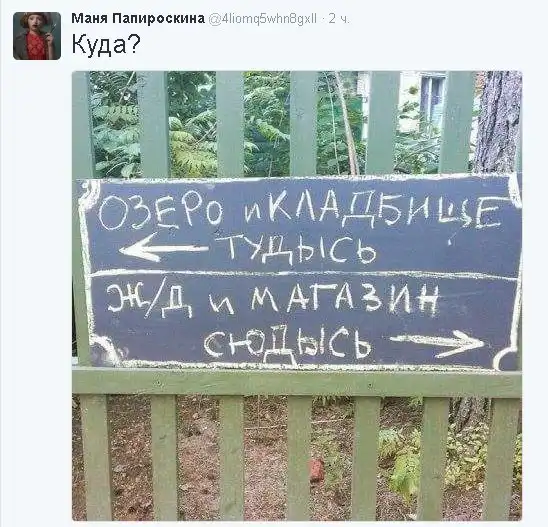 Маня Папироскина @4liomq5whn8gxll · 2 ч.
Куда?
ОЗЕРО и КЛАДБИЩЕ
← ТУДЫСЬ
Ж/Д и МАГАЗИН
СЮДЫСЬ →